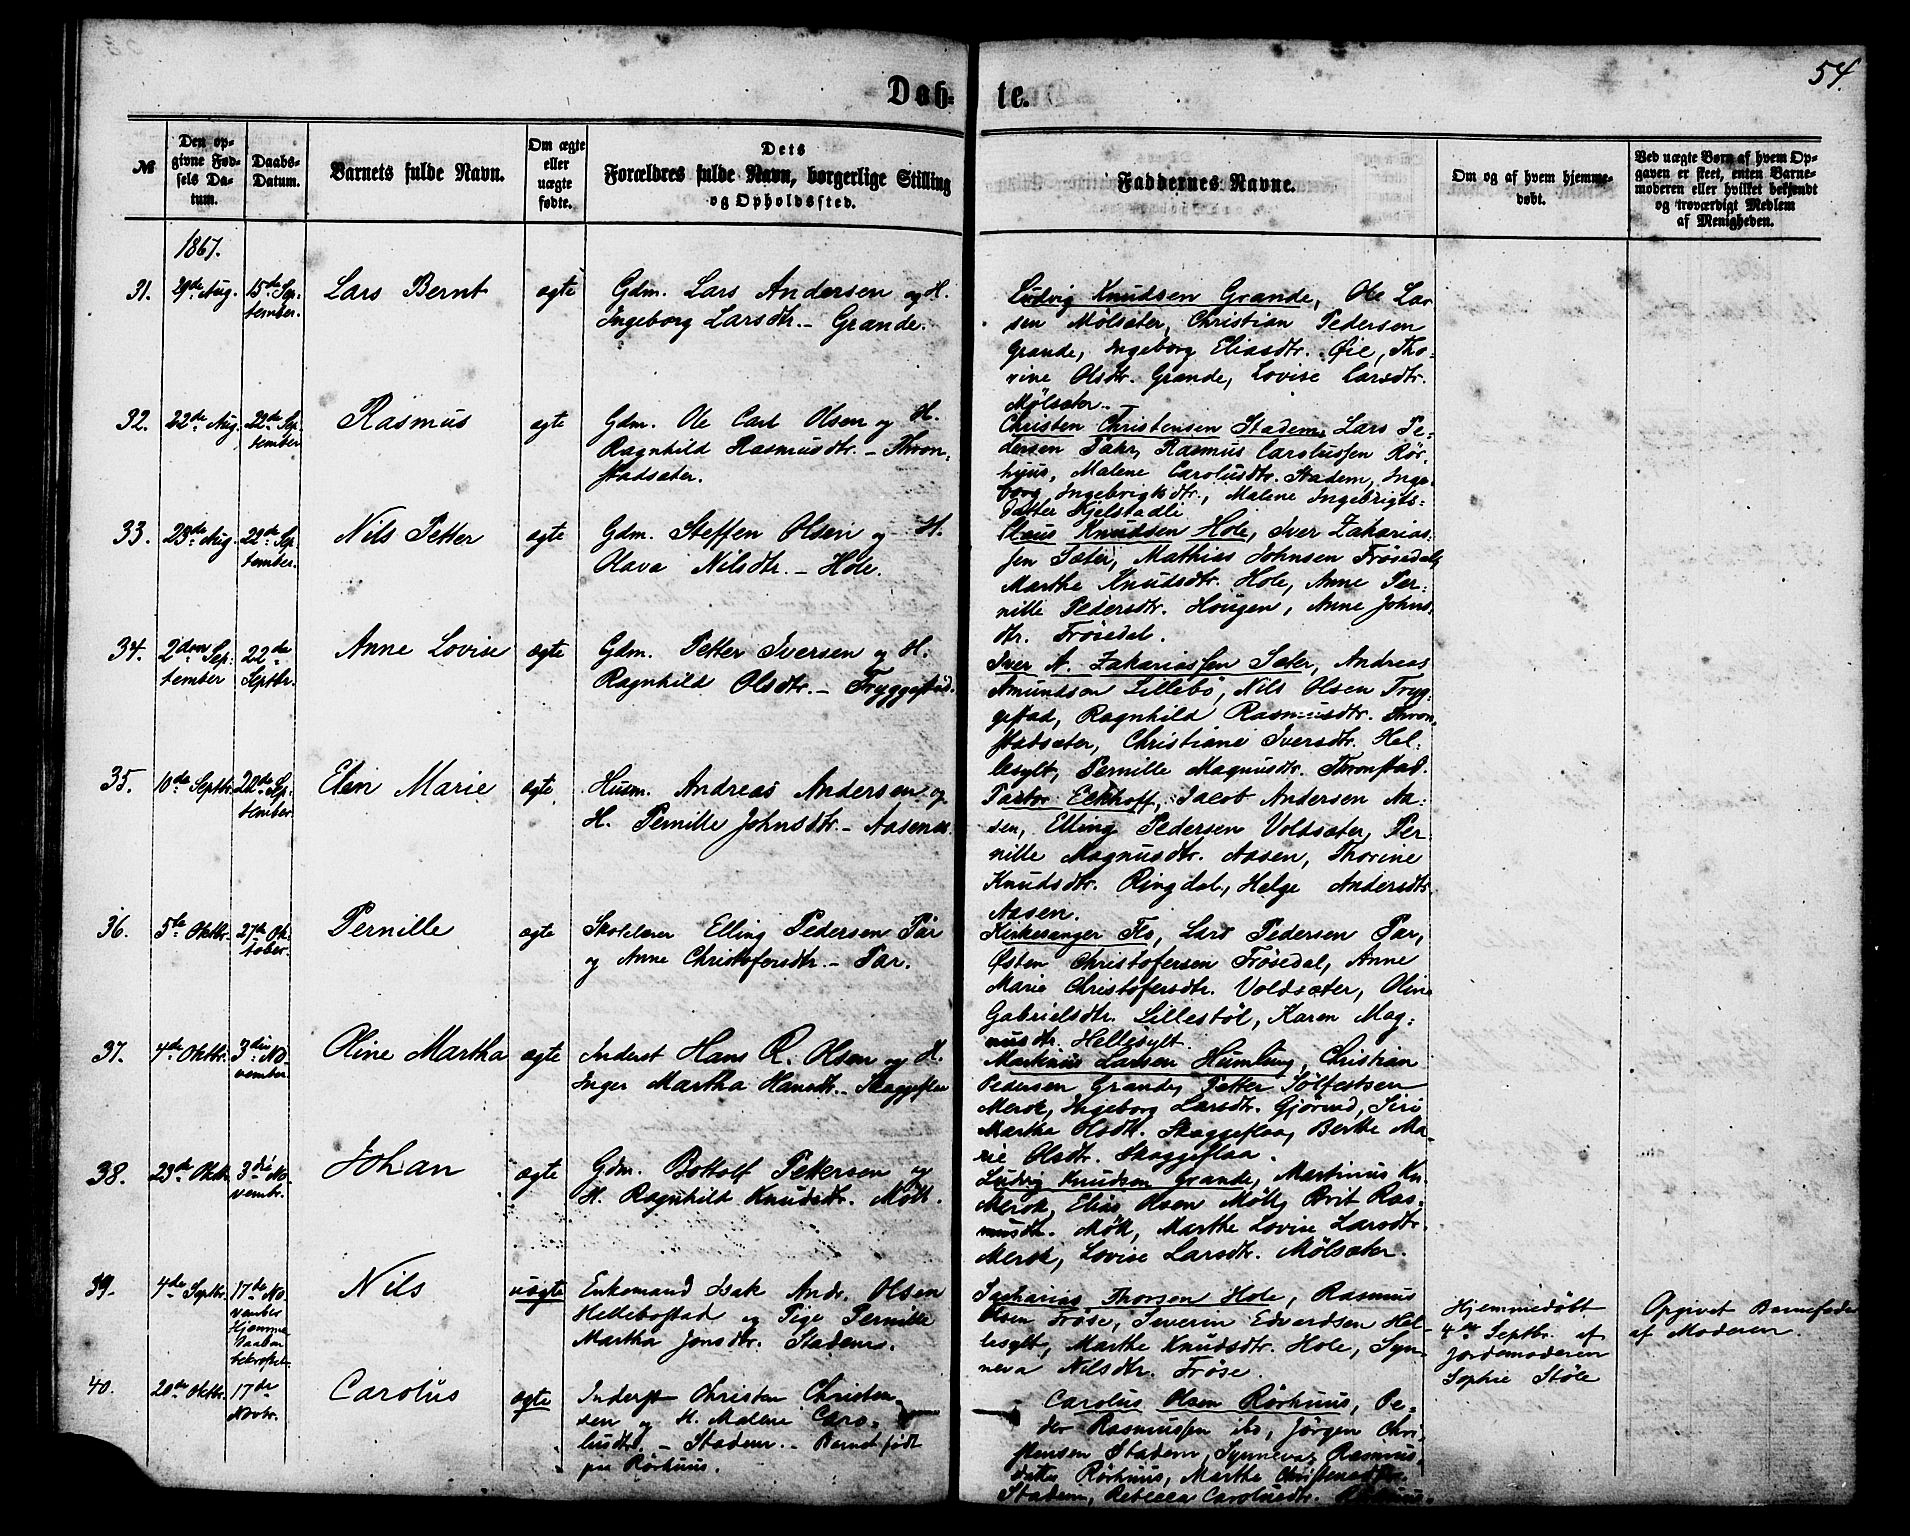 54.
Døb-
te.
№
Den op-
givne Fød-
sels Da-
tum.
Daabs-
Datum.
Barnets fulde Navn.
Om ægte
eller
uægte
fødte.
Dets
Forældres fulde Navn, borgerlige Stilling
og Opholdssted.
Faddernes Navne.
Om og af hvem hjemme-
døbt.
Ved uægte Børn af hvem Op-
gaven er skeet, enten Barne-
moderen eller hvilket bekjendt
og troværdigt Medlem
af Menigheden.
1867.
31.
29de Aug.
15de Sep-
tember.
Lars Bernt
ægte
Gdm. Lars Andersen og H.
Ingeborg Larsdtr. - Grande.
Ludvig Knudsen Grande, Ole Lar
sen Mølsæter, Christian Pedersen
Grande, Ingeborg Eliasdtr. Øie, Tho-
rine Olsdtr. Grande, Lovise Larsdtr.
Mølsæter.
32.
22de Aug.
22de Sep
tember
Rasmus
ægte
Gdm. Ole Carl Olsen og H.
Ragnhild Rasmusdtr. - Thron-
stadsæter.
Christen Christensen Stadem, Lars Pe-
dersen Rasmus Carolussen Rør-
huus, Malene Carolusdtr. Stadem, Inge-
borg Ingebrigtsdtr., Malene Ingebrigts-
datter Kjelstadli
33.
23de Aug.
22de Sep
tember.
Nils Petter
ægte
Gdm. Steffen Olsen og H.
Olava Nilsdtr. - Hole.
Claus Knudsen Hole, Iver Zakarias-
sen Sæter, Mathias Johnsen Frøsedal,
Marthe Knudsdtr. Hole, Anne Per-
nille Pedersdtr. Hougen, Anne Johns-
dtr. Frøsedal.
34.
2den Sep-
tember
22de
Septbr.
Anne Lovise
ægte
Gdm. Petter Iversen og H.
Ragnhild Olsdtr. - Tryggestad.
Iver A. Zakariassen Sæter, Andreas
Amundsen Lillebø, Nils Olsen Tryg-
gestad, Ragnhild Rasmusdtr. Thron-
stadsæter, Christiane Iversdtr. Hel-
lesylt, Pernille Magnusdtr. Thronstad.
35.
10de Septbr.
22de Sep-
tember
Elen Marie
ægte
Husm. Andreas Andersen og
H. Pernille Johnsdtr. - Aasen
Pastor Eckhoff, Jacob Andersen Aa-
sen, Elling Pedersen Voldsæter, Per
nille Magnusdtr. Aasen, Thorine
Knudsdtr. Ringdal, Helge Andersdtr.
Aasen.
36.
5te Oktbr.
27de Ok-
tober.
Pernille
ægte
Skolelærer Elling Pedersen Tår
og Anne Christofersdtr. - Tar.
Kirkesanger Flo, Lars Pedersen Tar,
Østen Christofersen Frøsedal, Anne
Marie Christofersdtr. Voldsæter, Oline
Gabrielsdtr. Lillestøl, Karen Mag-
nusdtr. Hellesylt.
37.
4de Oktbr.
3die No
vember
Oline Martha
ægte
Inderst Hans R. Olsen og H.
Inger Martha Hansdtr. - Skaggeflaa
Markinus Larsen Humlung, Christian
Pedersen Grande, Petter Sølfestsen
Merok, Ingeborg Larsdtr. Gjørud, Siri
Martha Olsdtr. Skaggeflaa, Berthe Ma-
rie Olsdtr. Skaggeflaa.
38.
23de Oktbr.
3die No-
vembr.
Johan
ægte
Gdm. Bottolf Pettersen og
H. Ragnhild Knudsdtr. Møll.
Ludvig Knudsen Grande, Martinus Kn.
Merok, Elias Olsen Møll, Brit Ras-
musdtr. Møll, Marthe Lovise Larsdtr.
Merok, Lovise Larsdtr. Mølsæter.
39.
4de Septbr.
17de No
vember
Hjemme
Daaben
bekræftet.
Nils
uægte
Enkemand Isak Andr. Olsen
Hellebostad og Pige Pernille
Martha Jonsdtr. Stadem.
Zacharias Thorsen Hole, Rasmus
Olsen Frøse, Severin Edvardsen Hel-
lesylt, Marthe Knudsdtr. Hole, Syn-
neva Nilsdtr. Frøse.
Hjemmedøbt
4de Septbr. af
Jordemoderen
Sophie Støle
Opgivet Barnefader
af Moderen.
40.
20de Oktbr.
17de
Novbr.
Carolus
ægte
Inderst Christen Christen-
sen og H. Malene Caro-
lusdtr. - Stadem. - Barnet født
paa Rørhuus.
Carolus Olsen Rørhuus, Pe-
der Rasmussen ibs, Jørgen Chri-
stensen Stadem, Synneva Rasmus-
datter Rørhuus, Marthe Christensdtr.
Stadem, Rebecca Carolusdtr. Rørhuus.